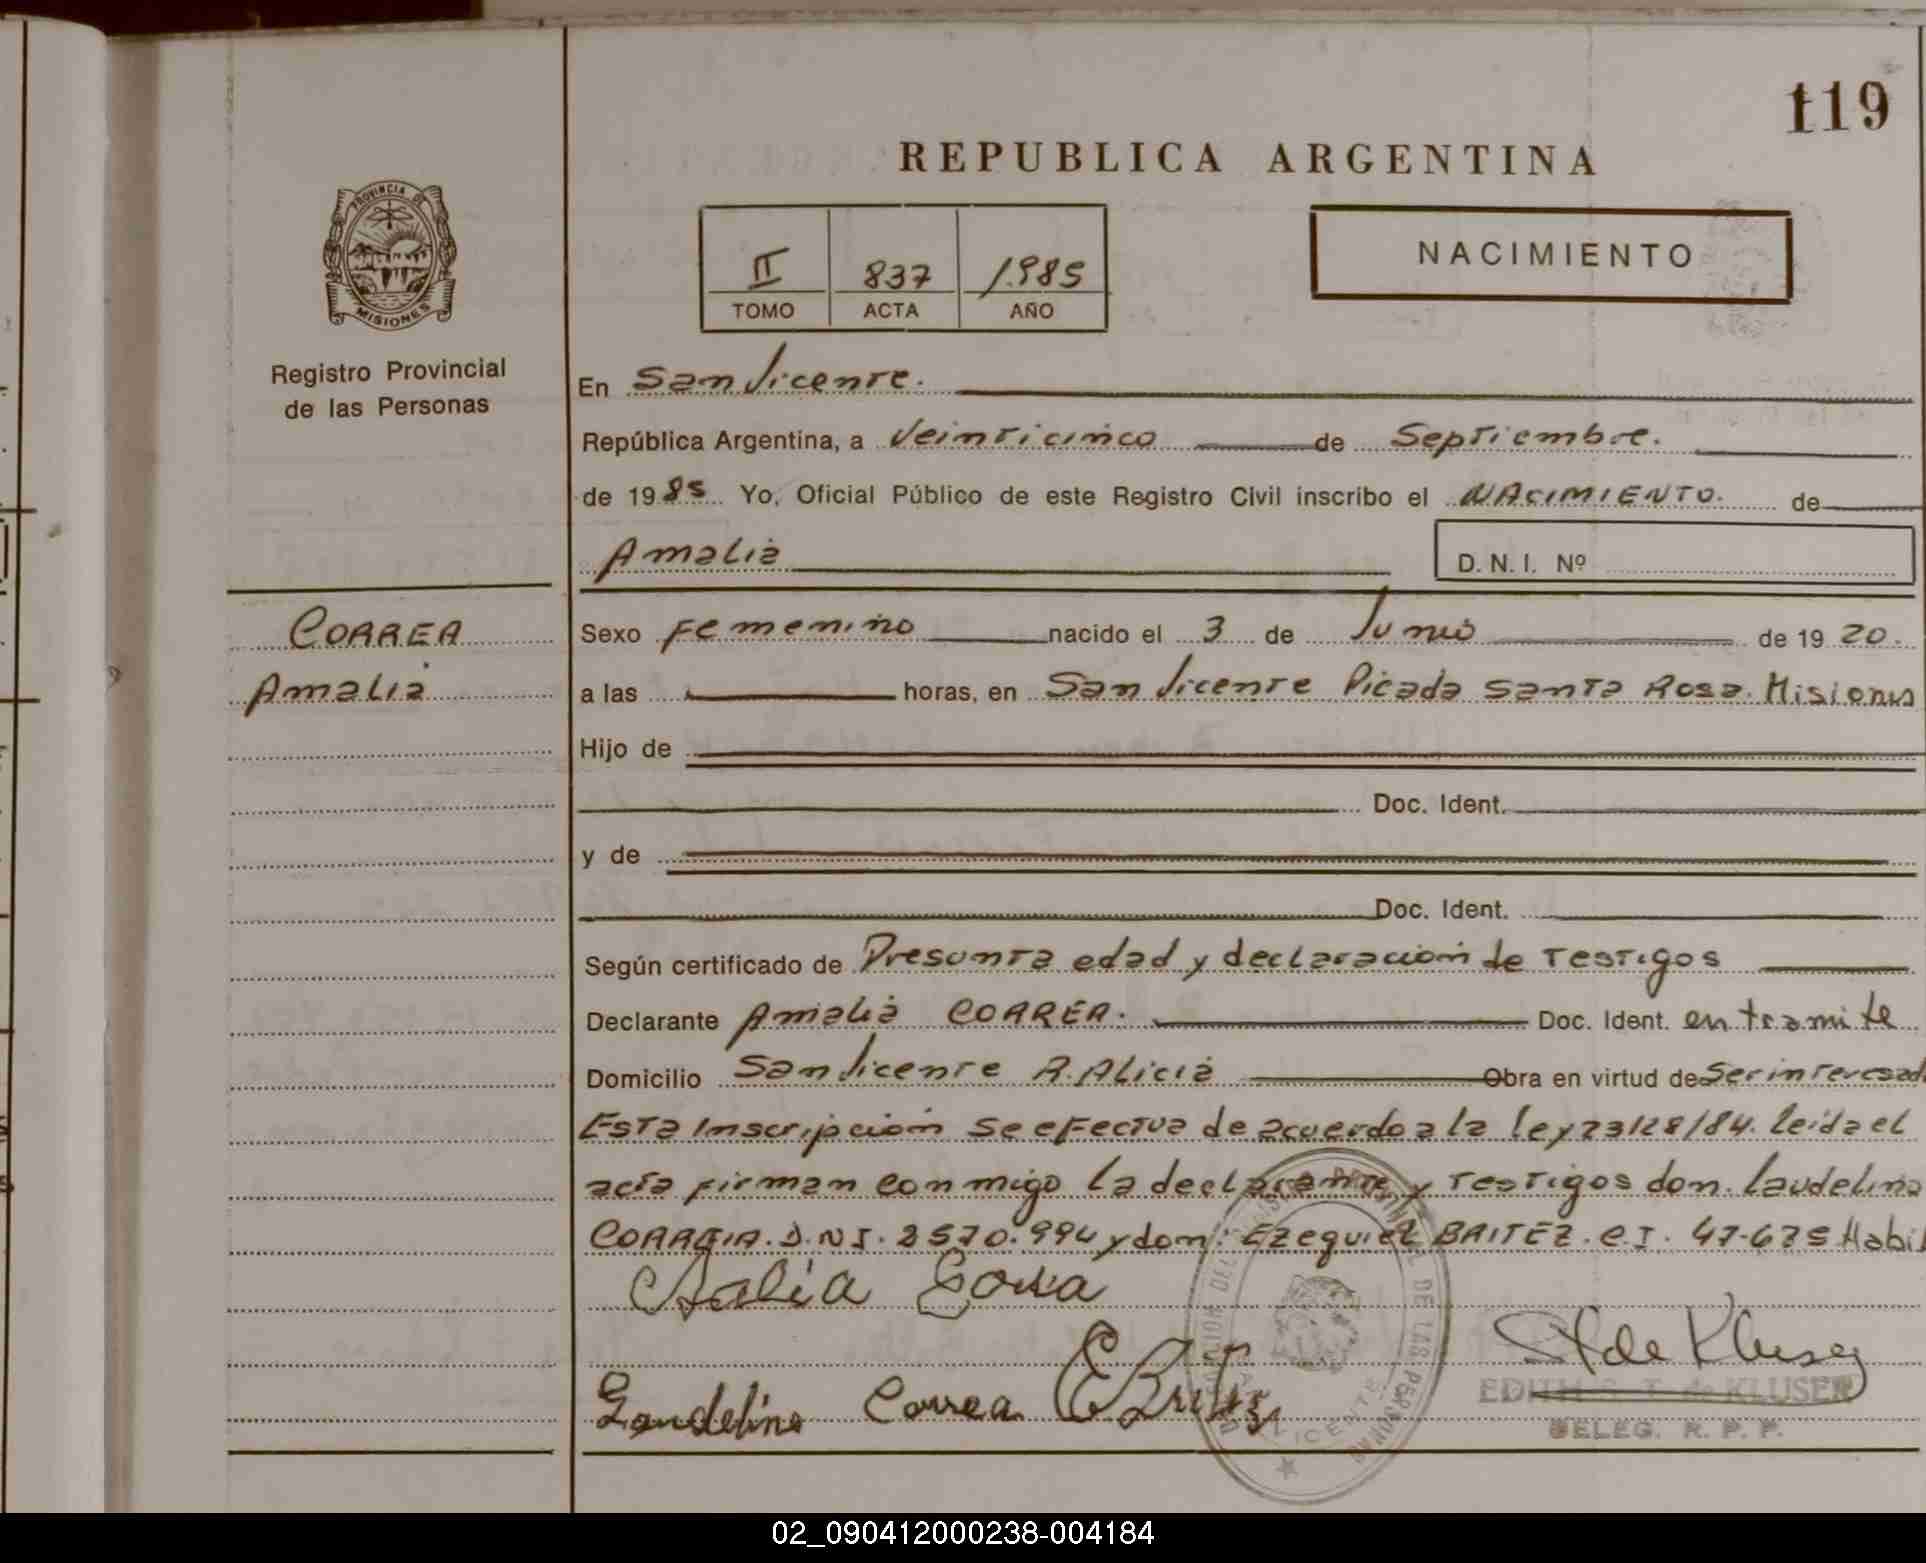 119
REPUBLICA ARGENTINA
PROVINCIA DE
MISIONES
II 837 1.985
TOMO ACTA AÑO
NACIMIENTO
Registro Provincial
de las Personas
En San Vicente.
República Argentina, a Veinticinco de Septiembre.
de 1985 Yo, Oficial Público de este Registro Civil inscribo el NACIMIENTO. de
Amalia D. N. I. Nº
CORREA
Amalia
Sexo Femenino nacido el 3 de Junio de 1920.
a las horas, en San Vicente Picada Santa Rosa. Misiones
Hijo de
Doc. Ident.
y de
Doc. Ident.
Según certificado de Presunta edad y declaración de Testigos
Declarante Amalia CORREA. Doc. Ident. en tramite
Domicilio San Vicente R. Alicia Obra en virtud de Ser interesad
Esta Inscripción se efectua de acuerdo a la ley 23128/84. leída el
acta firman conmigo la declarante y Testigos don. Laudelino
CORREIA. D.N.I. 2570.994 y don: Ezequiel BRITEZ. C.I. 47.675 Habil
Correa
EDITH S. T. de KLUSER
DELEG. R. P. P.
02_090412000238-004184